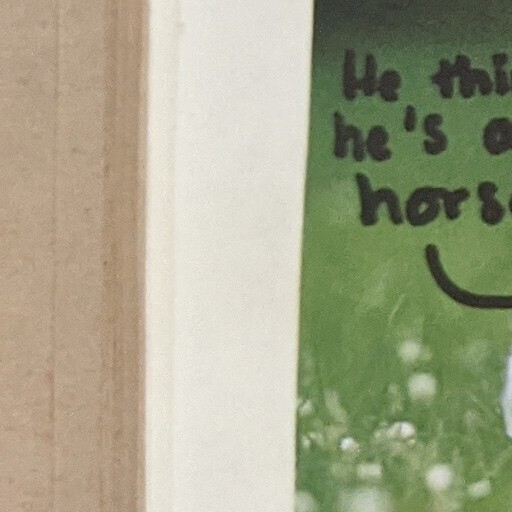 He thi
he's a
horse